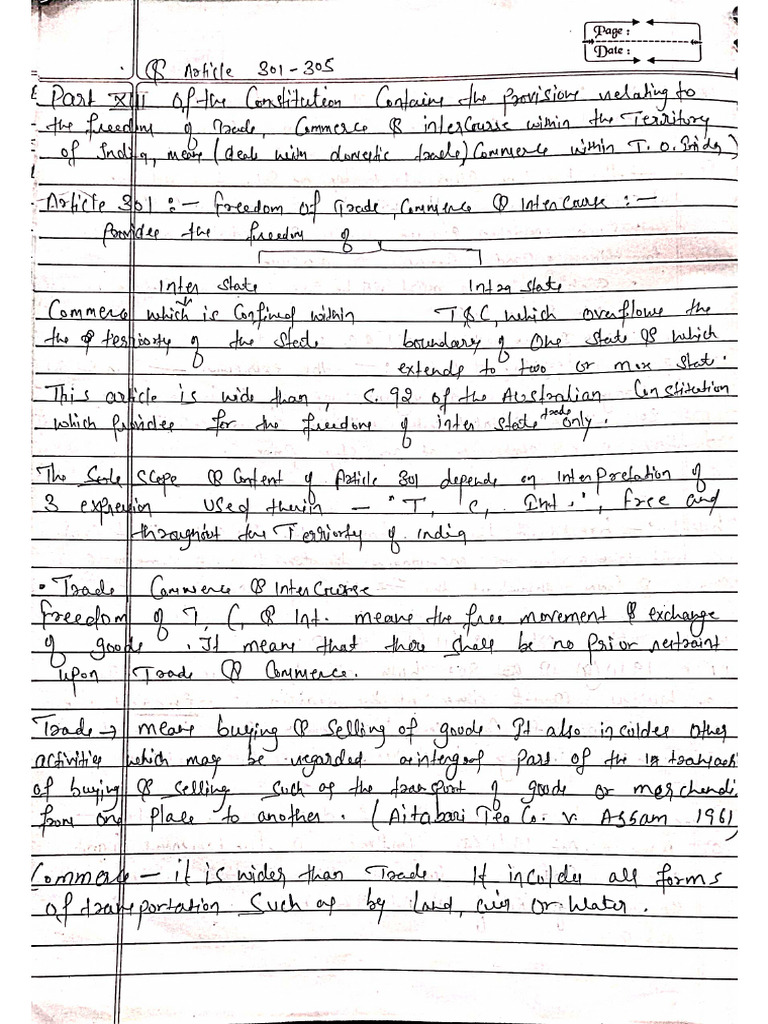 Page :
Date :
& Article 301-305
Part XIII of the Constitution Contains the provisions relating to
the freedom of trade, Commerce & intercourse within the Territory
of India, means (deals with domestic trade) Commerce within T. O. India)
Article 301 :- Freedom of Trade, Commerce & InterCourse :-
Provides the freedom of
Inter State
Intra State
Commerce which is Confined within
the territory of the State
T&C, which overflows the
boundary of One State & which
extends to two or more State.
This article is wide than, C. 92 of the Australian Constitution
which provides for the freedom of inter State trade only.
The Scope & Content of Article 301 depends on Interpretation of
3 expression used therein - "T, C, Int.", free and
throughout the Terriorty of India
• Trade Commerce & InterCourse
Freedom of T, C, & Int. means the free movement & exchange
of goods. It means that there shall be no prior restraint
upon Trade & Commerce.
Trade → means buying & Selling of goods. It also inculdes Other
activities which may be regarded as intergral Part of the transacti
of buying & selling Such as the transport of goods or merchandi
from one Place to another. (Aitabari Tea Co. v. Assam 1961)
Commerce - it is wider than Trade. It inculdes all forms
of transportation Such as by land, air or Water.